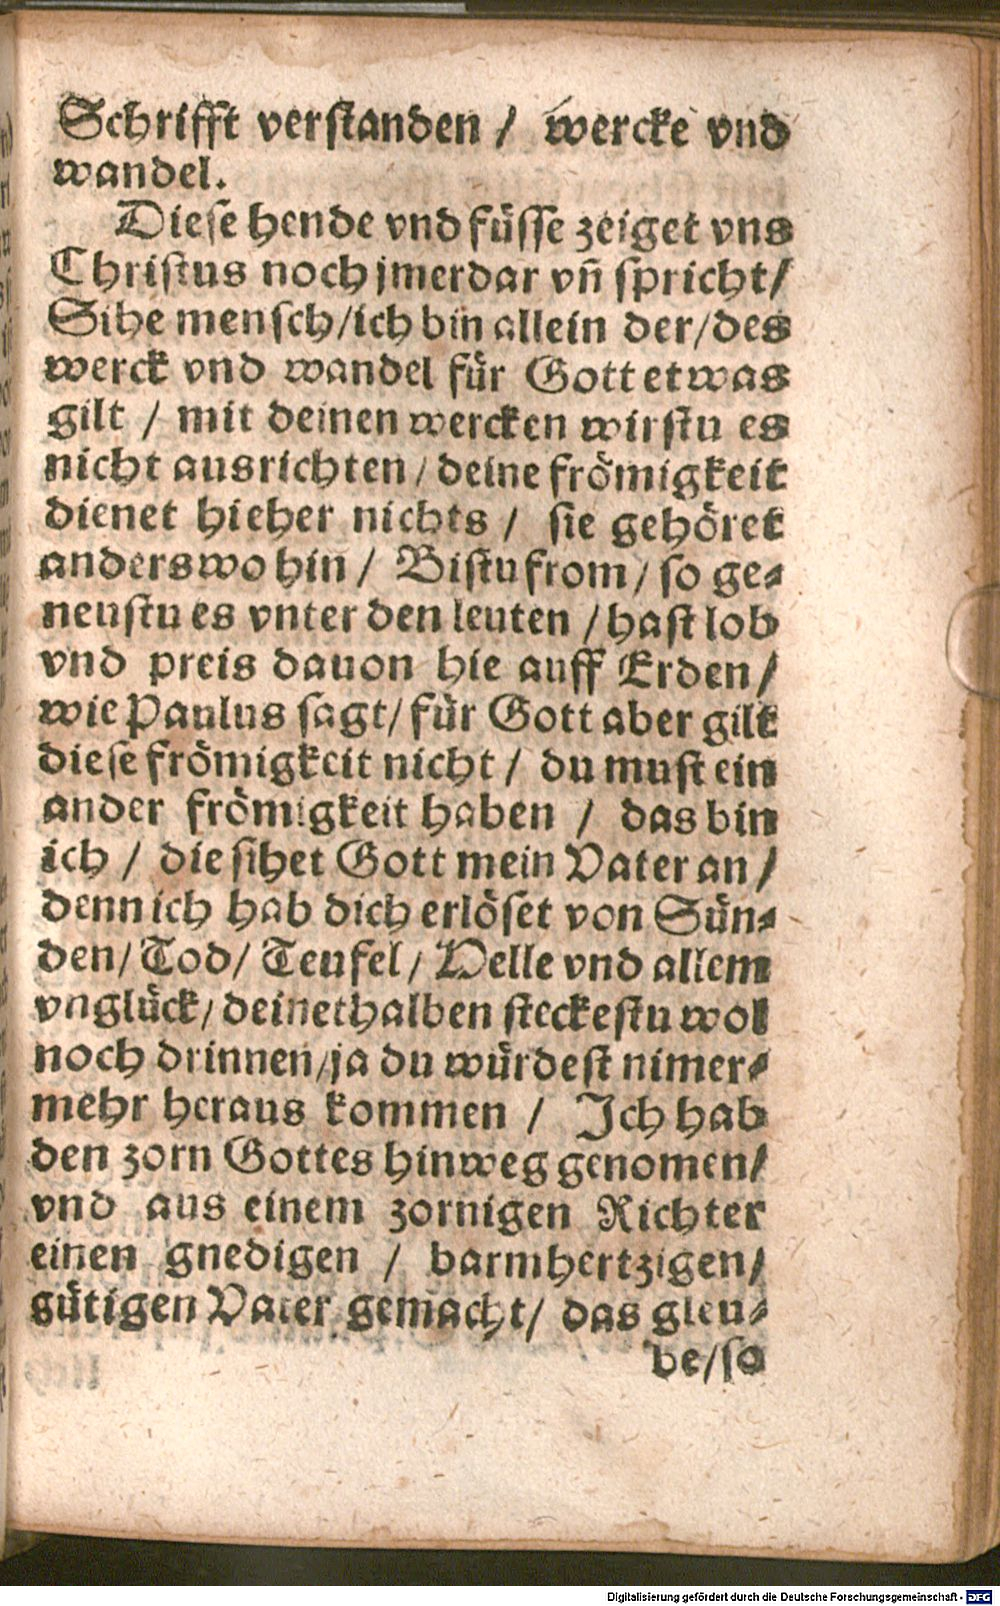 Schrifft verstanden / wercke vnd
wandel.
Diese hende vnd füsse zeiget vns
Christus noch jmerdar vñ spricht/
Sihe mensch/ich bin allein der/des
werck vnd wandel für Gott etwas
gilt / mit deinen wercken wirstu es
nicht ausrichten / deine frömigkeit
dienet hieher nichts / sie gehöret
anderswo hin / Bistu from / so ge-
neustu es vnter den leuten / hast lob
vnd preis dauon hie auff Erden /
wie Paulus sagt / für Gott aber gilt
diese frömigkeit nicht / du must ein
ander frömigkeit haben / das bin
ich / die sihet Gott mein Vater an /
denn ich hab dich erlöset von Sün-
den / Tod / Teufel / Helle vnd allem
vnglück / deinethalben steckestu wol
noch drinnen / ja du würdest nimer-
mehr heraus kommen / Ich hab
den zorn Gottes hinweg genomen /
vnd aus einem zornigen Richter
einen gnedigen / barmhertzigen /
gütigen Vater gemacht / das gleu-
be / so
Digitalisierung gefördert durch die Deutsche Forschungsgemeinschaft - DFG